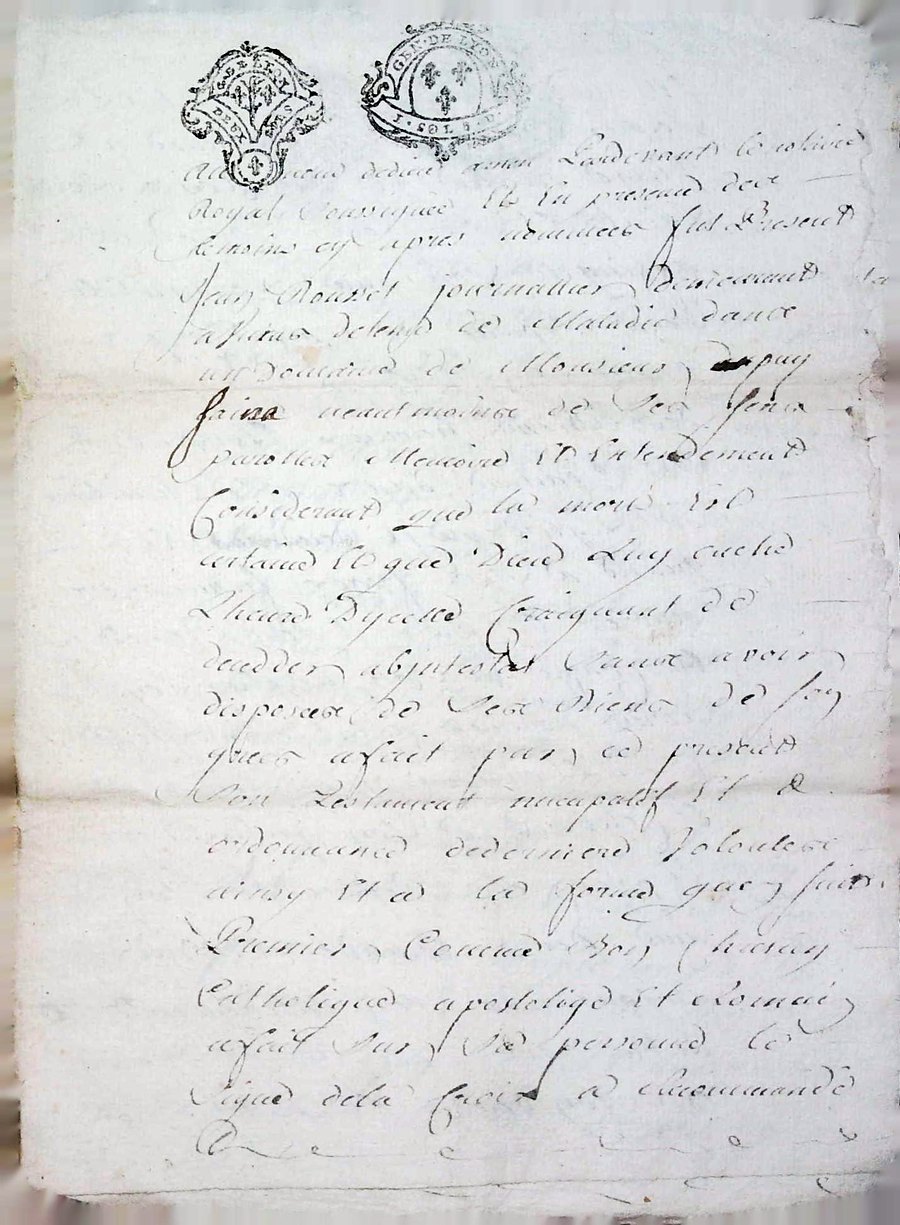 GEN · DE LYON
DEUX
GEN · DE LYON
1 · SOL 8 · D
Au nom de dieu amen Pardevant le notaire
Royal Soussigné Et En presence des
temoins cy apres nommees fut Present
Jean Rousset journallier demeurant
detenu de Maladie dans
un Domaine de Monsieur dupuy
saine neantmoins de ses sens
parolles Memoire Et Entendement
Considerant que la mort Est
certaine Et que Dieu Luy cache
L'heure D'ycelle Craignant de
decedder abjntestat Sans avoir
disposses de Ses Biens de son
grees a fait par ce present
Son Testament nuncupatif Et
ordonnance de derniere Volontees
ainsy Et a la forme que suit
Premier Comme Bon Chretien
Catholique apostoliqe Et Romain
a fait Sur Sa personne le
Signe de la Croix a Recommandé